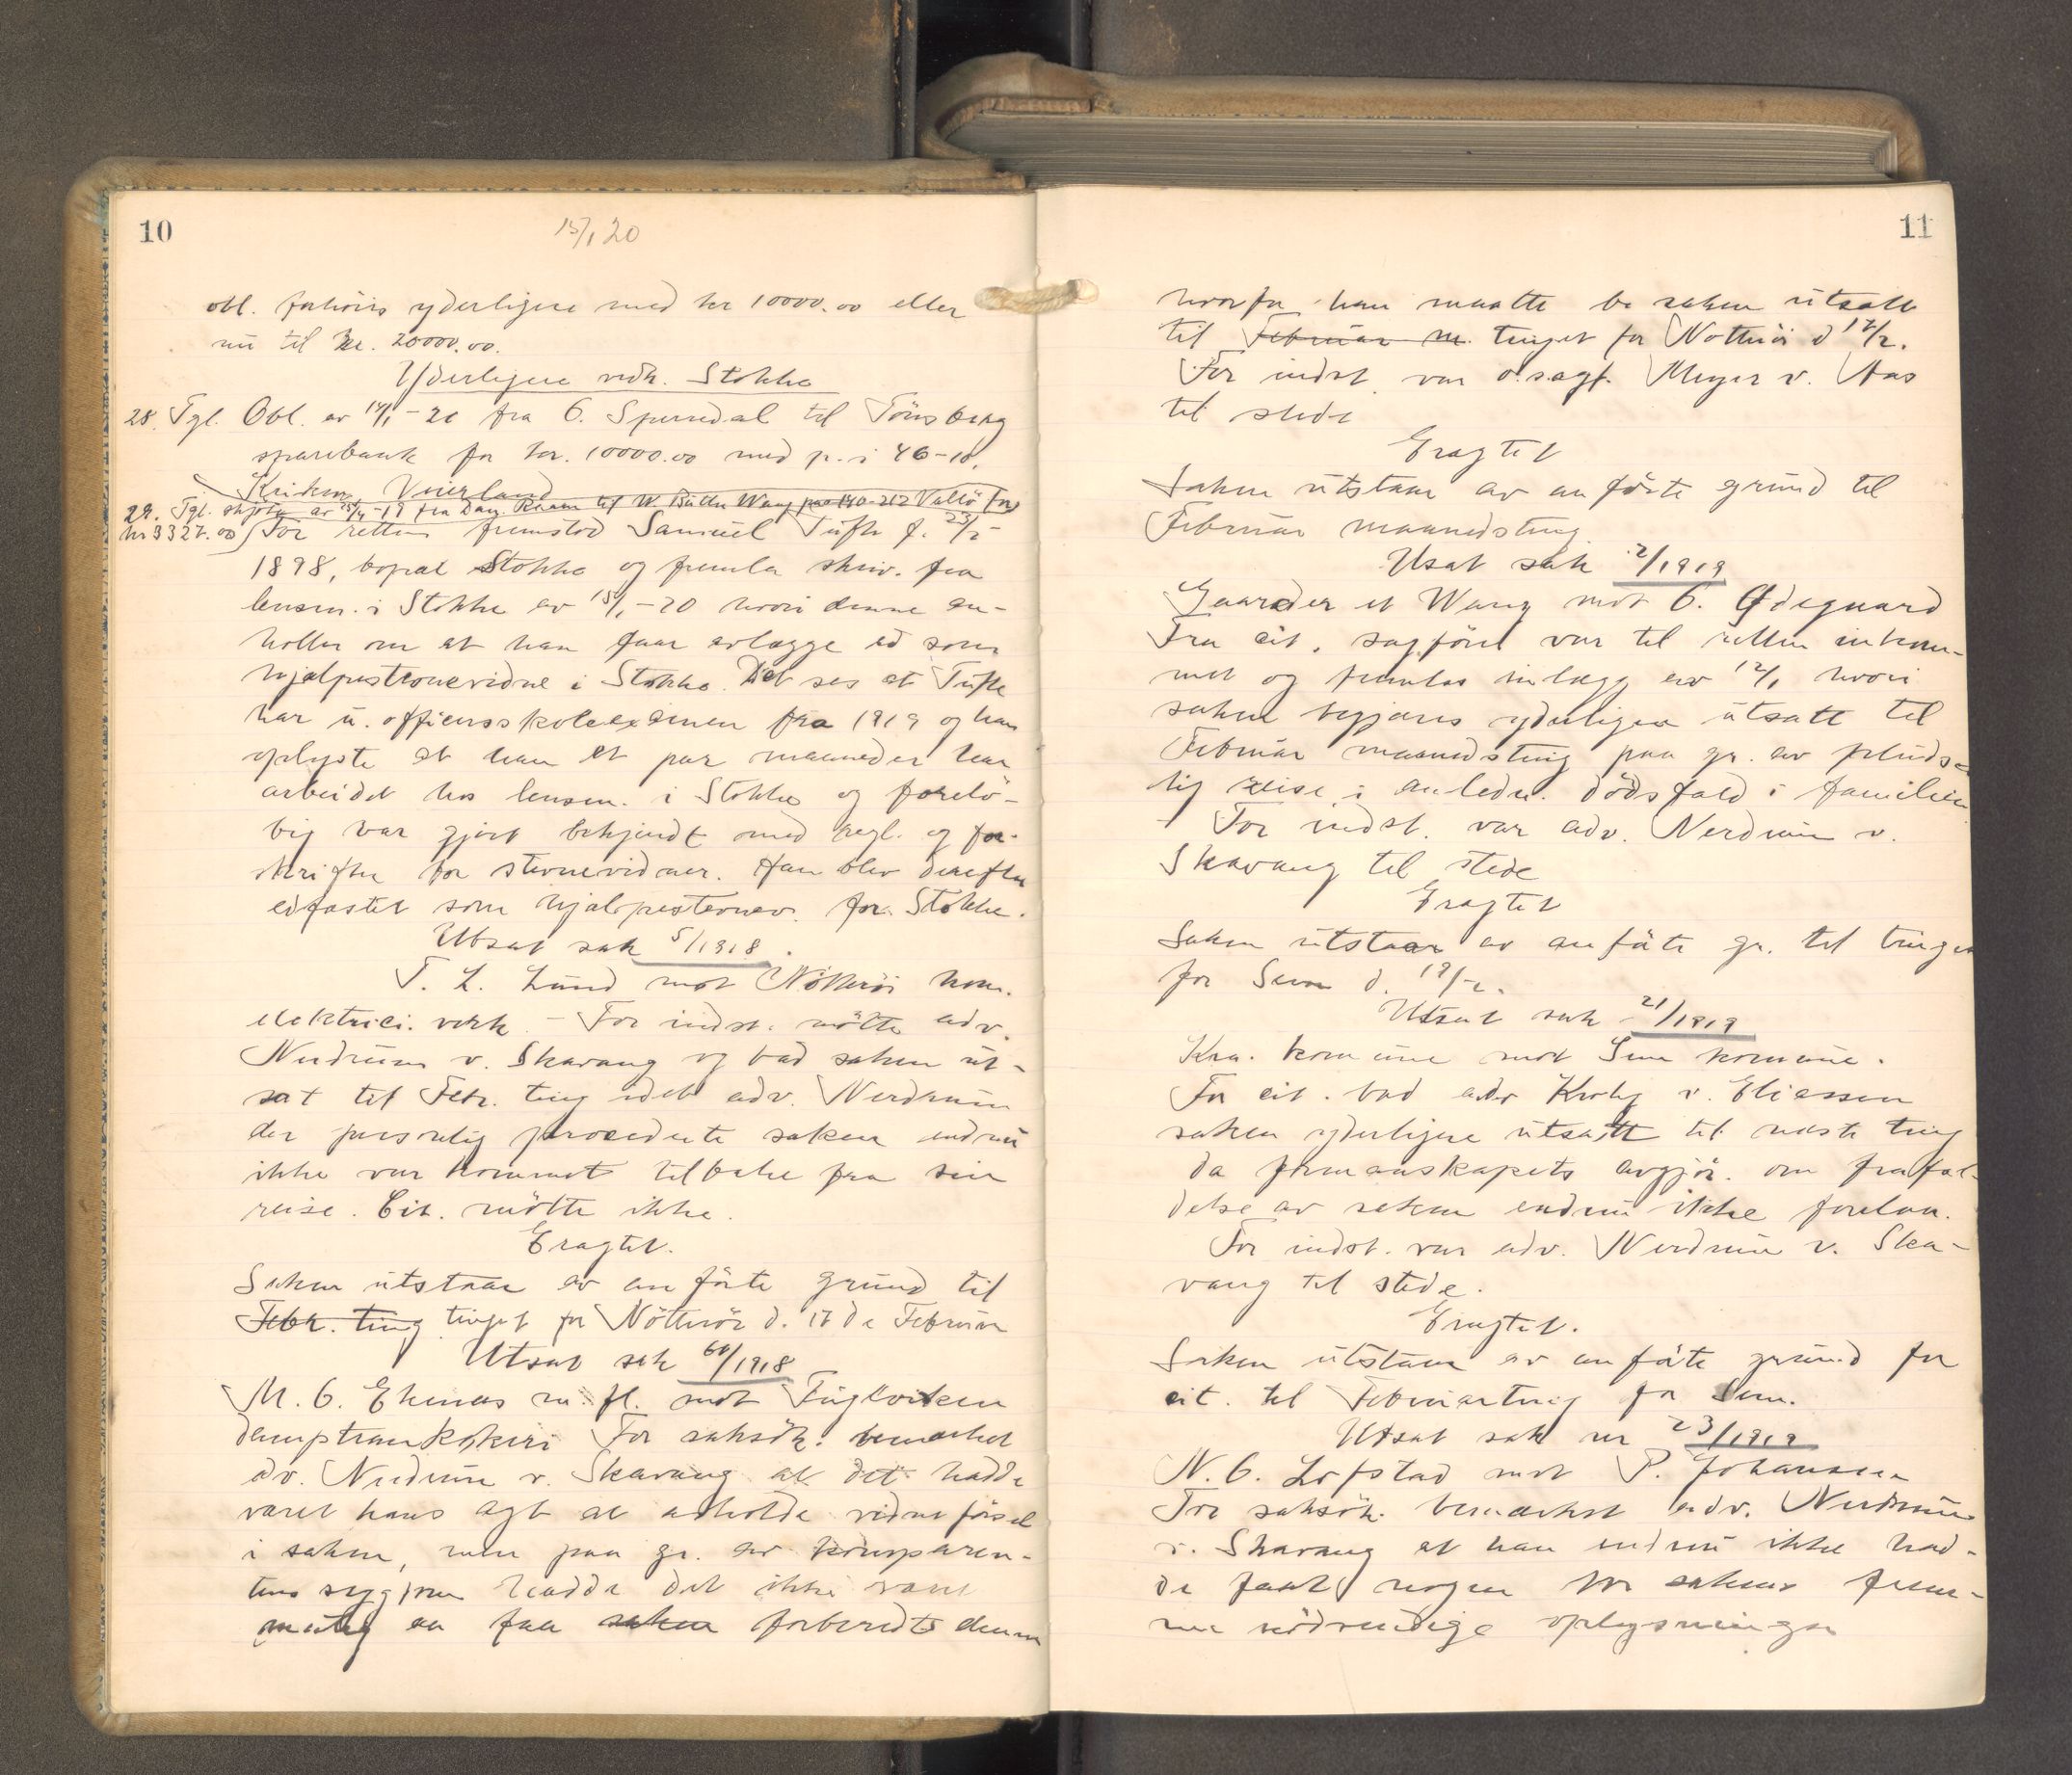 10
15/1 20
obl. forhöies yderligere med kr 10000.00 eller
nu til kr. 20000.00.
Yderligere vedk. Stokke
28. Tgl. Obl. av 14/1 - 20 fra C. til Tönsberg
sparebank for kr. 10000.00 med p. i 46-10.
Veierland
29. Tgl. skjöte av 25/4-19 fra Dag. til W. Bütho Wang paa 140-212 Vallö for
kr 3327.00 For retten fremstod Samuel Tufte f. 23/2
1898, bopæl Stokke og fremla skriv. fra
lensm. i Stokke av 15/1-20 hvori denne an-
holler om at han faar avlægge ed som
hjælpestevnevidne i Stokke. Det ses at Tufte
har u. officersskoleexamen fra 1919 og han
oplyste at han et par maaneder har
arbeidet hos lensm. i Stokke og forelö-
big var gjort bekjendt med regl. og for-
skrifter for stevnevidner. Han blev derefter
edfæstet som hjælpestevnev. for Stokke.
Utsat sak 5/1918.
T. L. Lund mot Nötterö kom.
elektrici. verk. - For indst. mötte adv.
Nerdrum v. Skavang og bad saken ut-
sat til Febr. ting idet adv. Nerdrum
der personlig procederte saken endnu
ikke var kommet tilbake fra sin
reise. Cit. mötte ikke.
Eragtet.
Saken utstaar av anförte grund til
Febr. ting tinget for Nötterö d. 17de Februar
Utsat sak 60/1918
M. C. Ekenæs m. fl. mot Fuglevikens
damptrankokeri For saksök. bemærket
adv. Nerdrum v. Skavang at det hadde
været hans agt at avholde vidneförsel
i saken, men paa gr. av komparen-
tens sygdom hadde det ikke været
mulig at faa saken forberedt denne
11
hvorfor han maatte be saken utsatt
til Februar m. tinget for Nötterö d 17/2.
For indst. var o.sagf. Meyer v. Aas
til stede
Eragtet
Saken utstaar av anförte grund til
Februar maanedsting.
Utsat sak 2/1919
Gaarder et Wang mot C. Ødegaard
Fra cit. sagförer var til retten inkom-
met og fremlas inlægg av 12/1 hvori
saken begjæres yderligere utsatt til
Februar maanedsting paa gr. av pludse-
lig reise i anledn. dödsfald i familien
- For indst. var adv. Nerdrum v.
Skavang til stede
Eragtet
Saken utstaar av anförte gr. til tinget
for Sem d. 19/2.
Utsat sak 21/1919
Kra. kommune mot Sem kommune.
For cit. bad adv v. Eliassen
saken yderligere utsatt til næste ting
da formanskapets avgjör. om frafal-
delse av saken endnu ikke forelaa.
For indst. var adv. Nerdrum v. Ska-
vang til stede.
Eragtet.
Saken utstaar av anförte grund for
cit. til Februarting for Sem.
Utsat sak nr 23/1919
N. C. Lofstad mot P. Johanssen
For saksök. bemærket adv. Nerdrum
v. Skavang at han endnu ikke had-
de faat nogen for sakens frem-
me nödvendige oplysninger